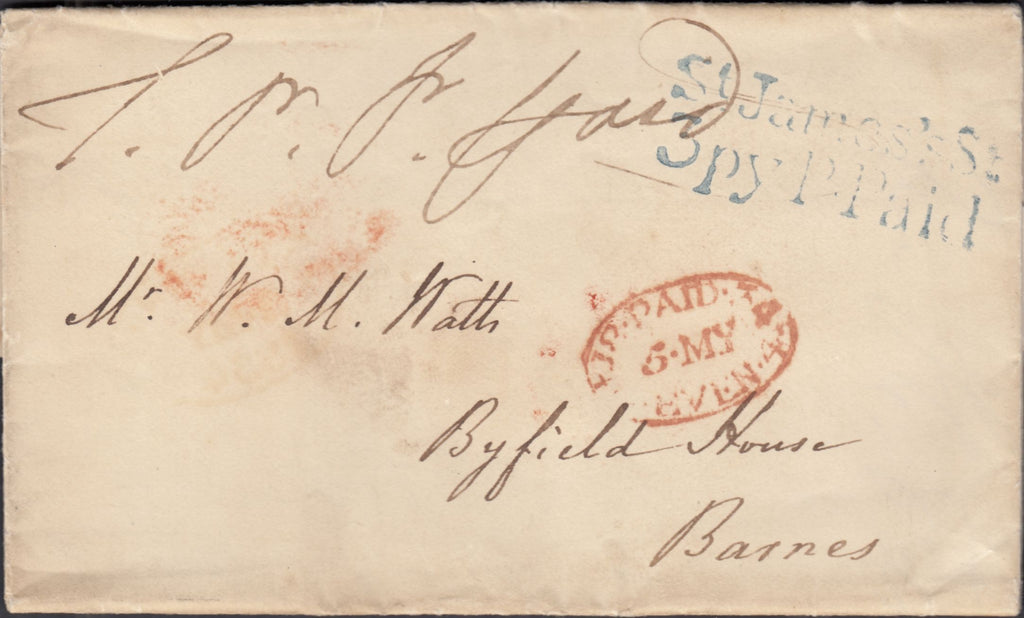 T. P. P. paid
St James's St
3py P. Paid
Mr. W. M. Watts
PAID
5·MY
EVEN·4
Byfield House
Barnes